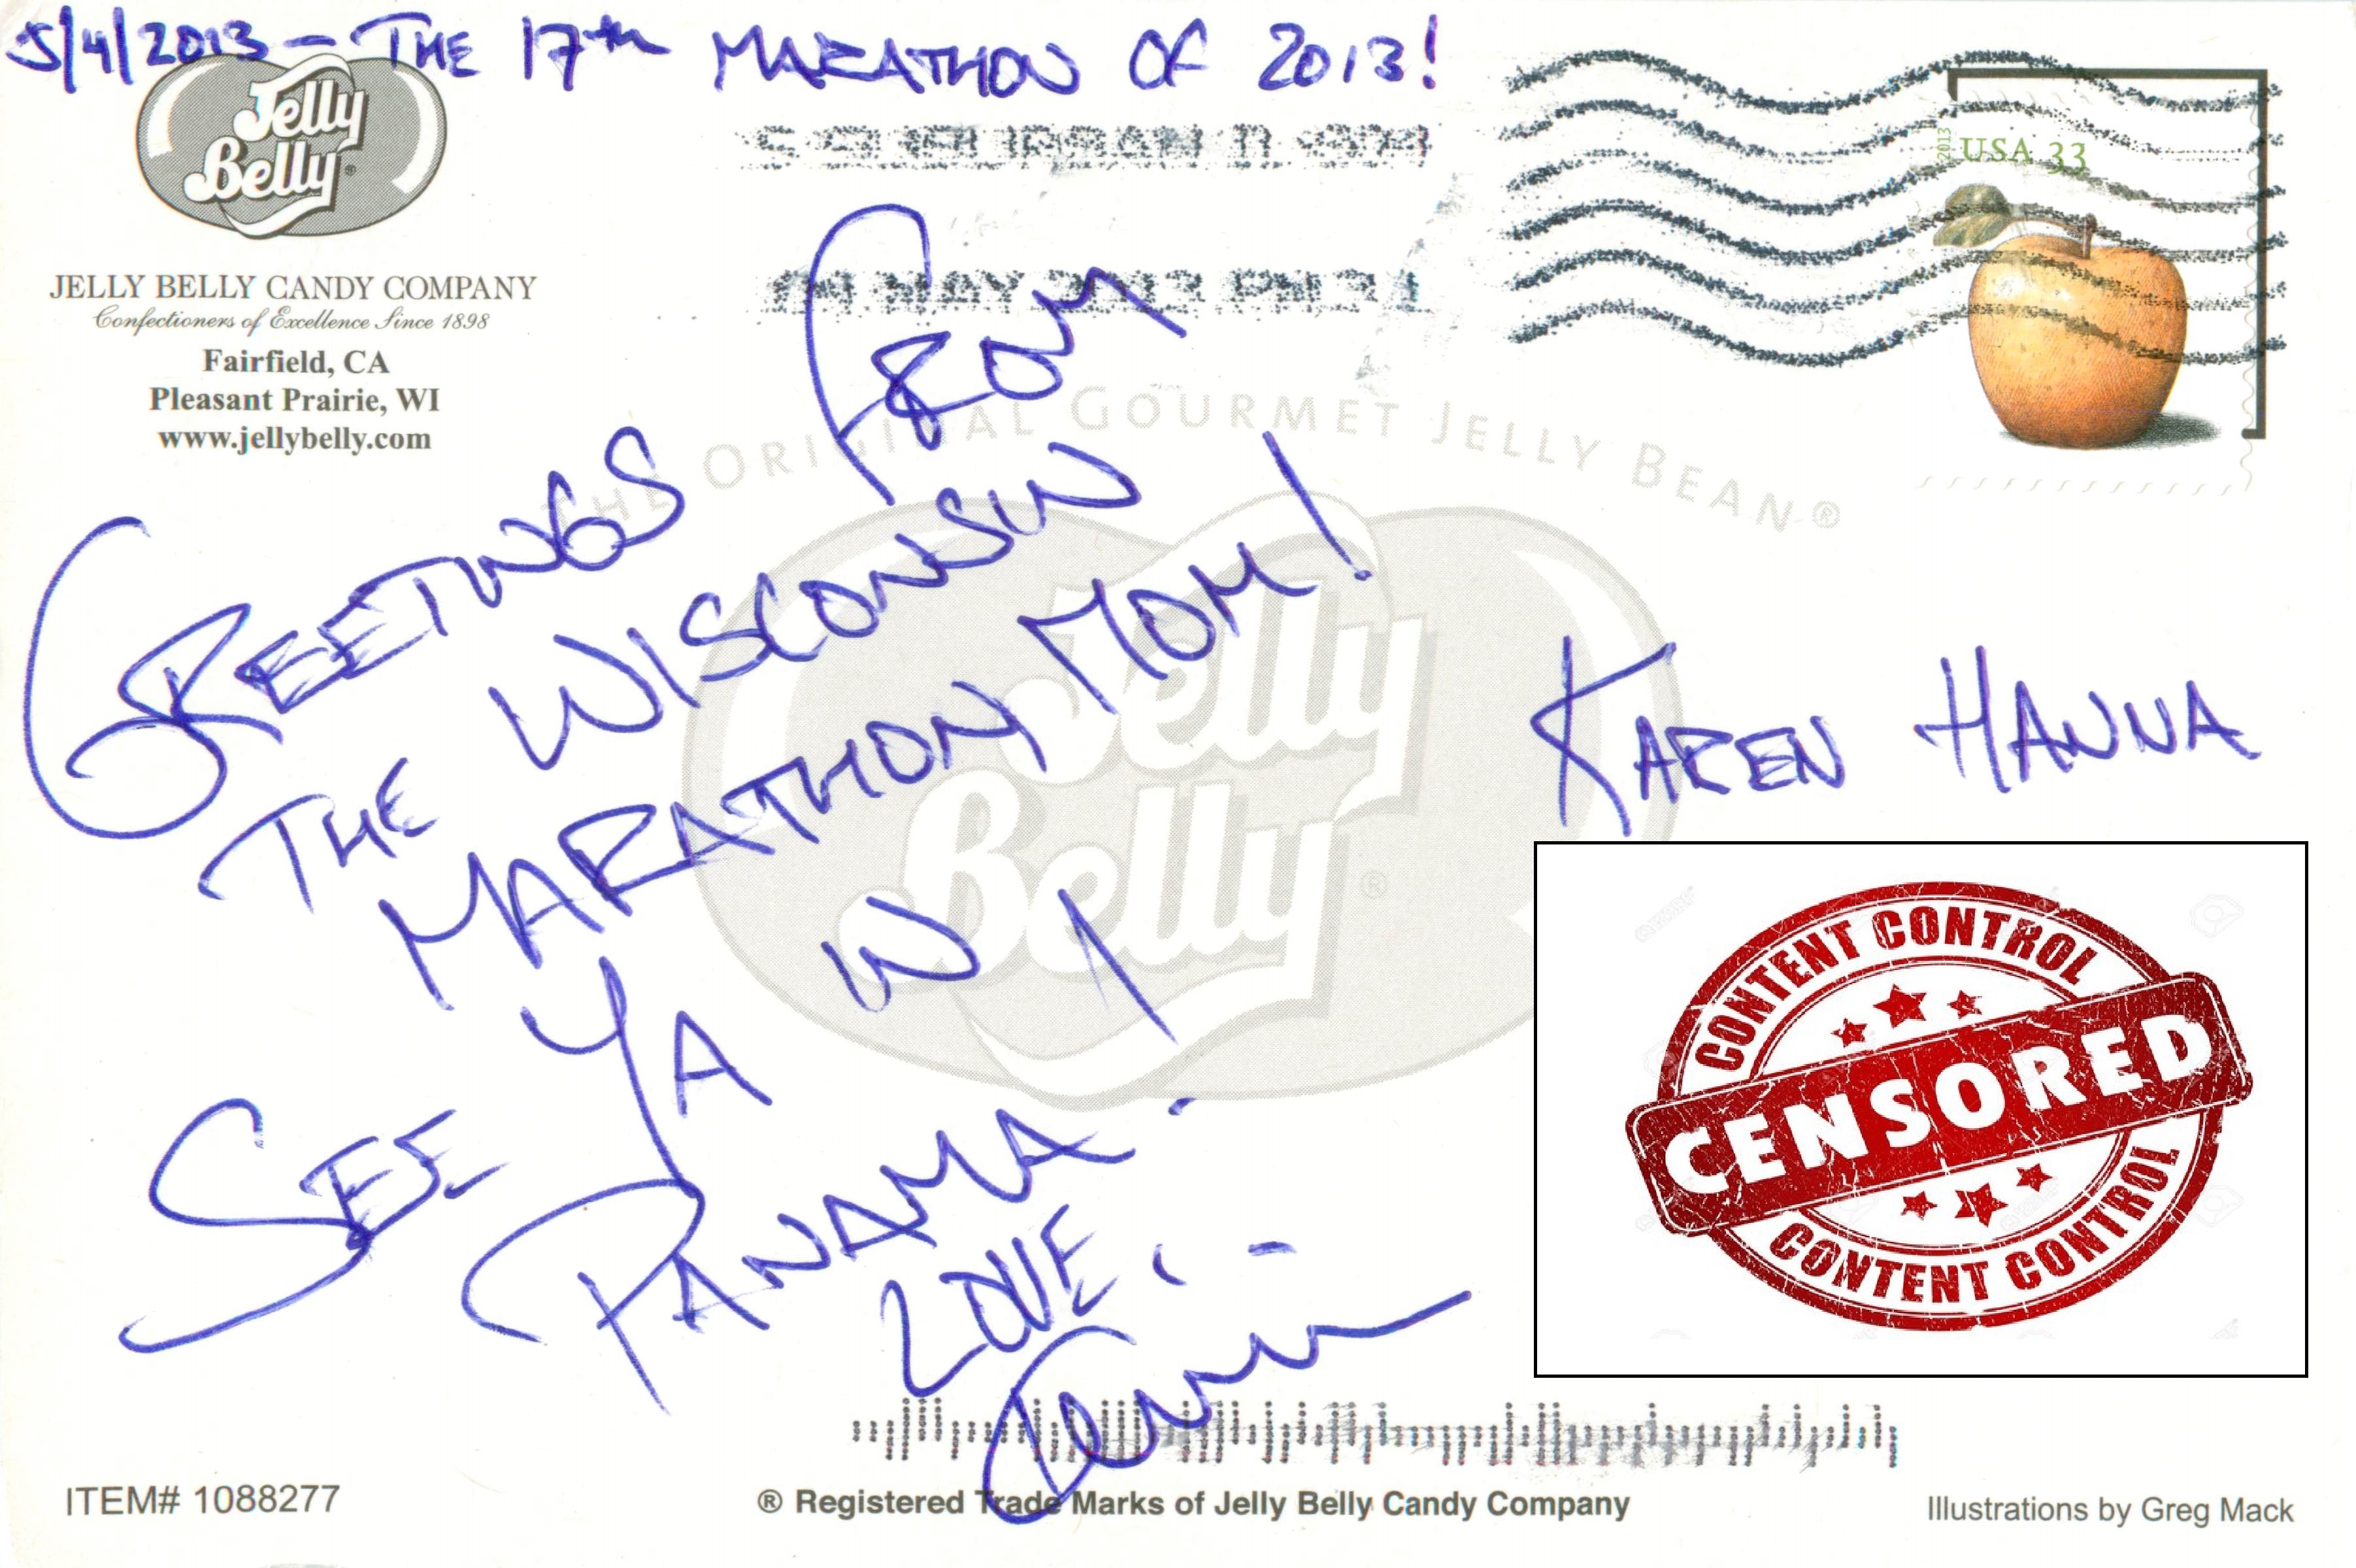 5/4/2013 - THE 17th MARATHON OF 2013!
Jelly
Belly®
JELLY BELLY CANDY COMPANY
Confectioners of Excellence Since 1898
Fairfield, CA
Pleasant Prairie, WI
www.jellybelly.com
S SUBURBAN IL
MAY 2013 PM
2013
USA 33
THE ORIGINAL GOURMET JELLY BEAN®
Jelly
Belly®
GREETINGS FROM
THE WISCONSIN
MARATHON MOM!
SEE YA IN
PANAMA!
LOVE,
KAREN HANNA
CONTENT CONTROL
CENSORED
CONTENT CONTROL
ITEM# 1088277
® Registered Trade Marks of Jelly Belly Candy Company
Illustrations by Greg Mack